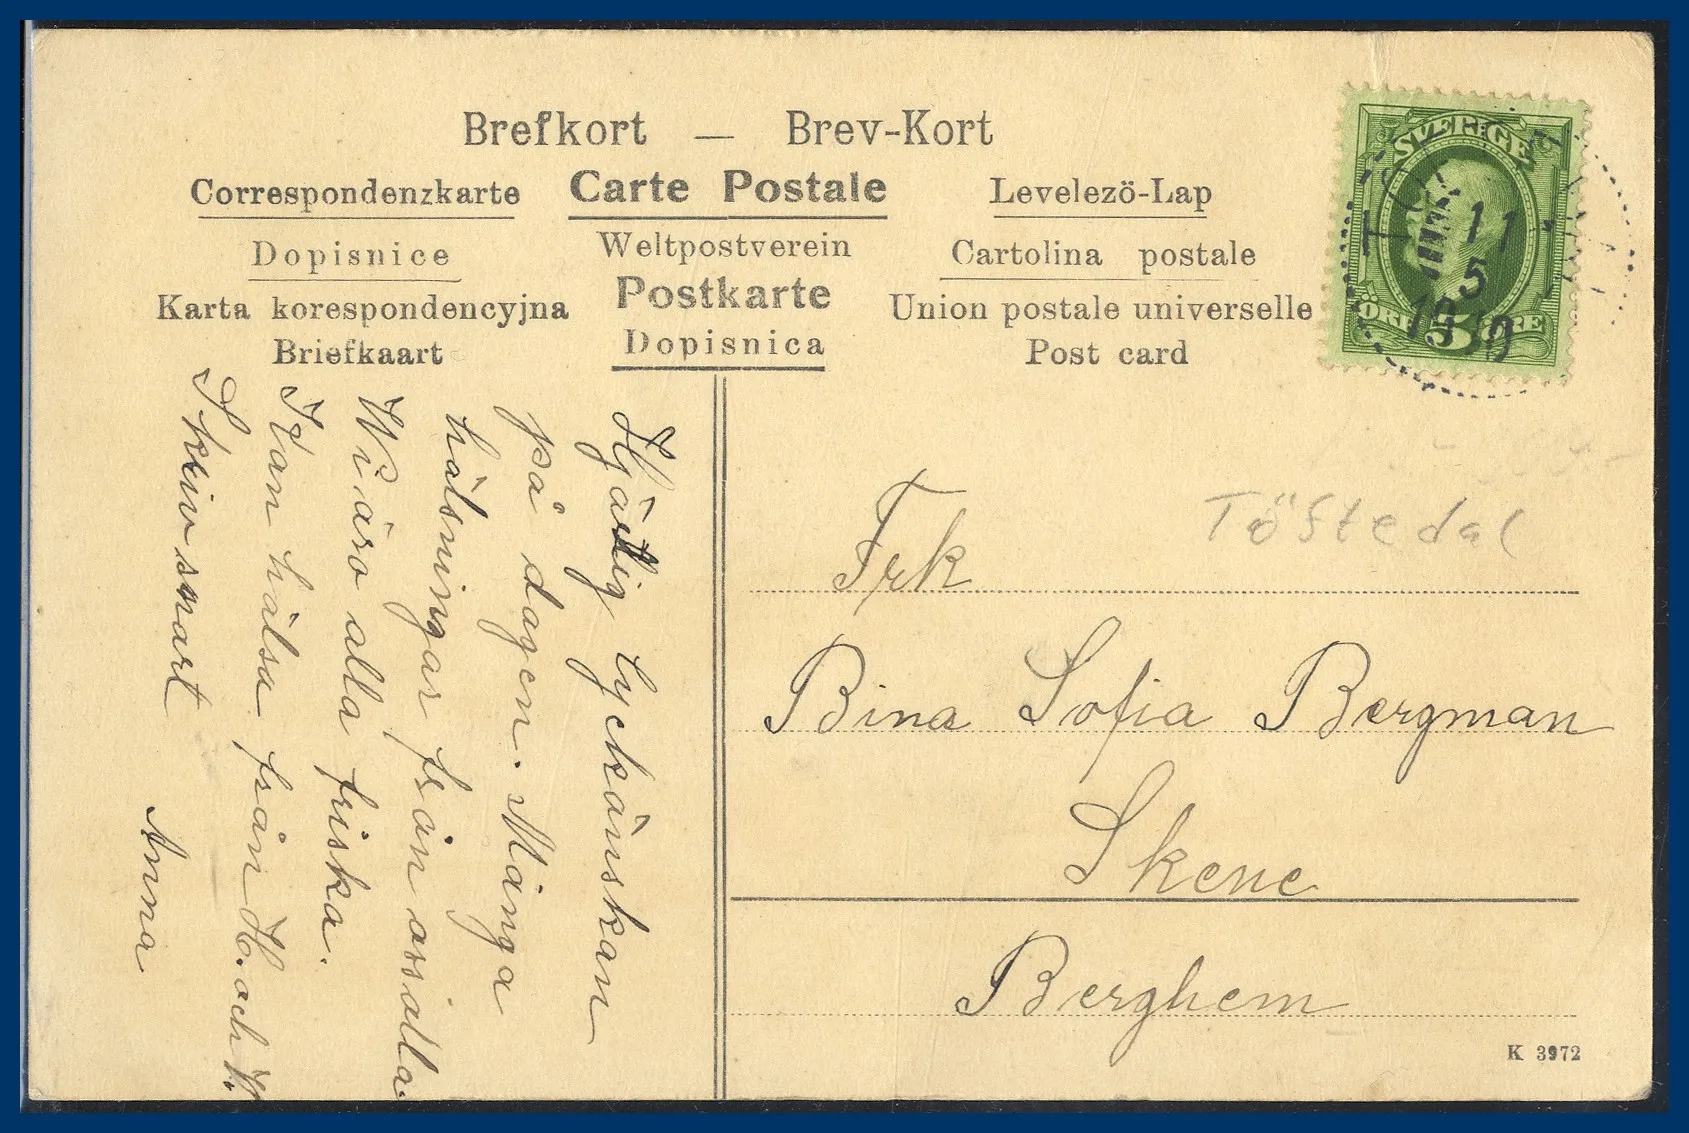 Brefkort — Brev-Kort
Correspondenzkarte Carte Postale Levelezö-Lap
Dopisnice Weltpostverein Cartolina postale
Karta korespondencyjna Postkarte Union postale universelle
Briefkaart Dopisnica Post card
SVERIGE
11 5
1910
ÖRE 5 ÖRE
Töftedal
Frk
Bina Sofia Bergman
Skene
Berghem
K 3972
Hjärtlig lyckönskan
på dagen. Många
hälsningar från oss alla.
Wi äro alla friska.
Kan hälsa från H. och W.
Skriv snart
Anna